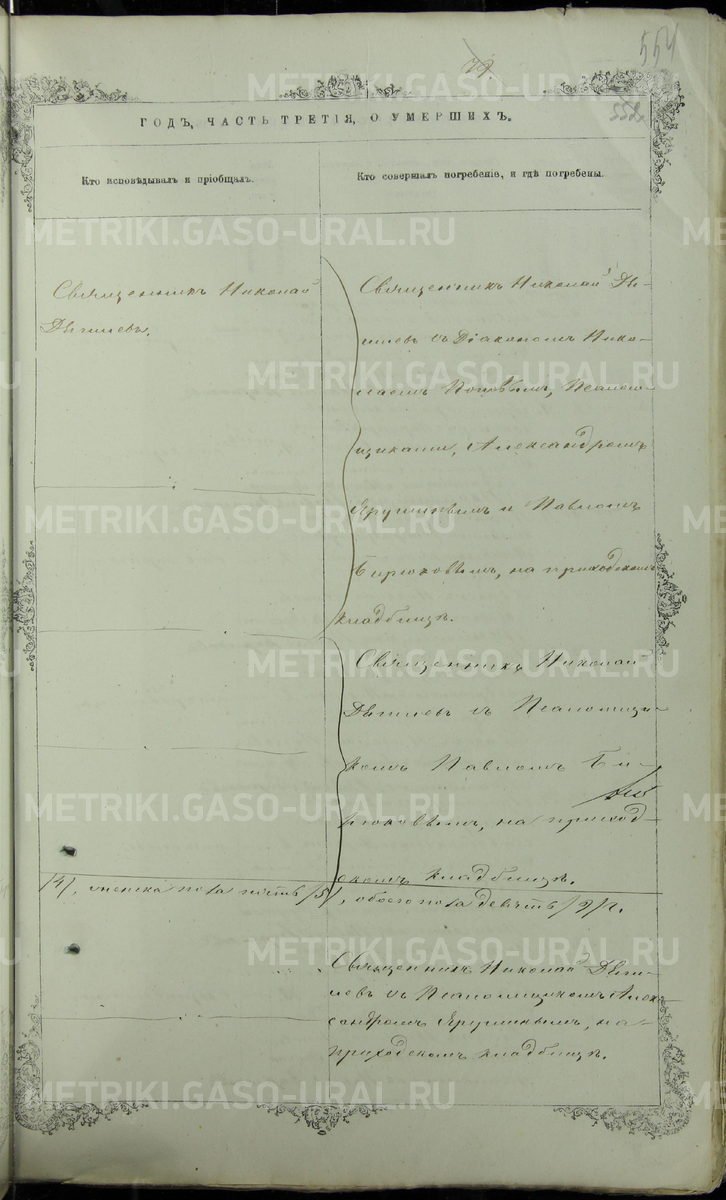 79.
554
552.
ГОДЪ, ЧАСТЬ ТРЕТІЯ, О УМЕРШИХЪ.
Кто исповѣдывалъ и пріобщалъ.
Кто совершалъ погребеніе, и гдѣ погребены.
Священникъ Николай
Священникъ Николай
съ Діакономъ Нико-
лаемъ Поповымъ, Псаломщ-
щиками, Александромъ
Ярушинымъ и Павломъ
Бирюковымъ, на приходскомъ
кладбищѣ.
Священникъ Николай
съ Псаломщи-
комъ Павломъ Би-
рюковымъ, на приход-
скомъ кладбищѣ.
/4/, женска пола пять /5/, обоего пола девять /9/.
Священникъ Николай
съ Псаломщикомъ Алек-
сандромъ Ярушинымъ, на
приходскомъ кладбищѣ.
METRIKI.GASO-URAL.RU